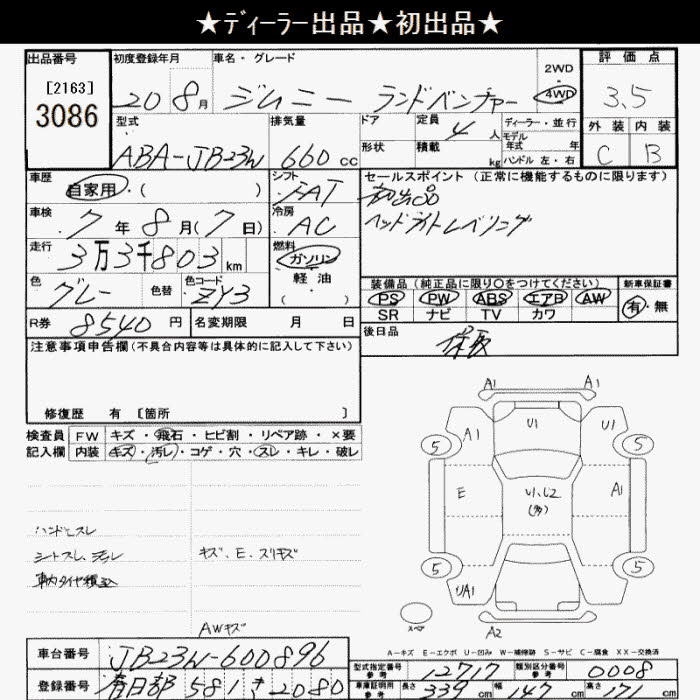 ★ディーラー出品★初出品★
出品番号 初度登録年月 車名・グレード 2WD・4WD 評価点
[2163]
3086
20 8月 ジムニー ランドベンチャー 3.5
型式 排気量 ドア 定員 4人 ディーラー・並行 外装 内装
ABA-JB23W 660cc 形状 積載 kg モデル年式 年 ハンドル 左・右 C B
車歴 自家用・( ) シフト FAT セールスポイント (正常に機能するものに限ります)
初出品
車検 7年8月(7日) 冷房 AC ヘッドライトレベリング
走行 3万3千803km 燃料 ガソリン・軽油・( )
色 グレー 色替 色コード ZY3 装備品 (純正品に限り○をつけてください) 新車保証書
PS PW ABS エアB AW 有・無
SR ナビ TV カワ
R券 8540円 名変期限 月 日 後日品
注意事項申告欄(不具合内容等は具体的に記入して下さい)
修復歴 有 [箇所 ]
検査員 FW キズ・飛石・ヒビ割・リペア跡・×要
記入欄 内装 キズ・汚レ・コゲ・穴・スレ・キレ・破レ
A1 A1
A1 U1 U1
5 5
E U1、U2 A1
(多)
5 5
UA1
スペア A2
ハンドルスレ
シートスレ、汚レ キズ、E、スリキズ
車内タイヤ積込
AWキズ
A-キズ E-エクボ U-凹み W-補修跡 S-サビ C-腐食 XX-交換済
車台番号 JB23W-600896 型式指定番号 参考 12717 類別区分番号 参考 0008
登録番号 春日部 581 き 2080 車庫証明用 参考 長さ 339cm 幅 147cm 高さ 171cm